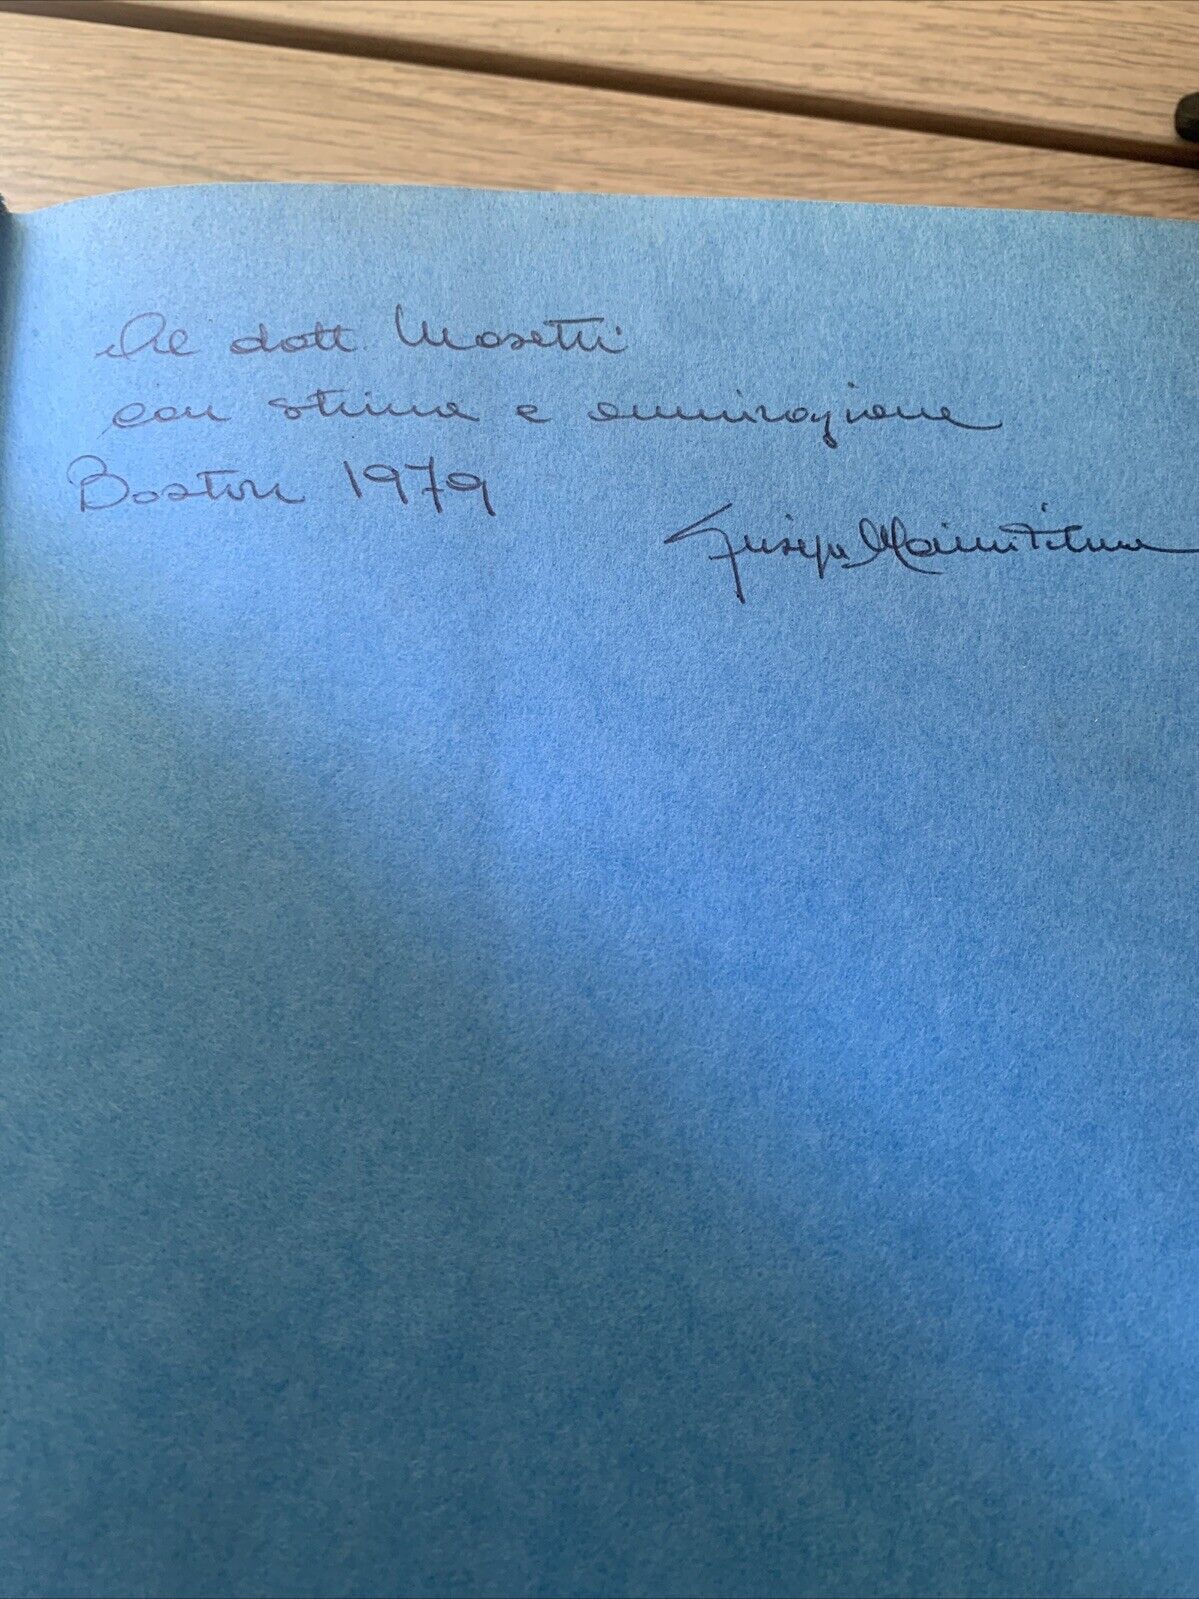 Al dott. Mosetti
con stima e ammirazione
Boston 1979
Giuseppe